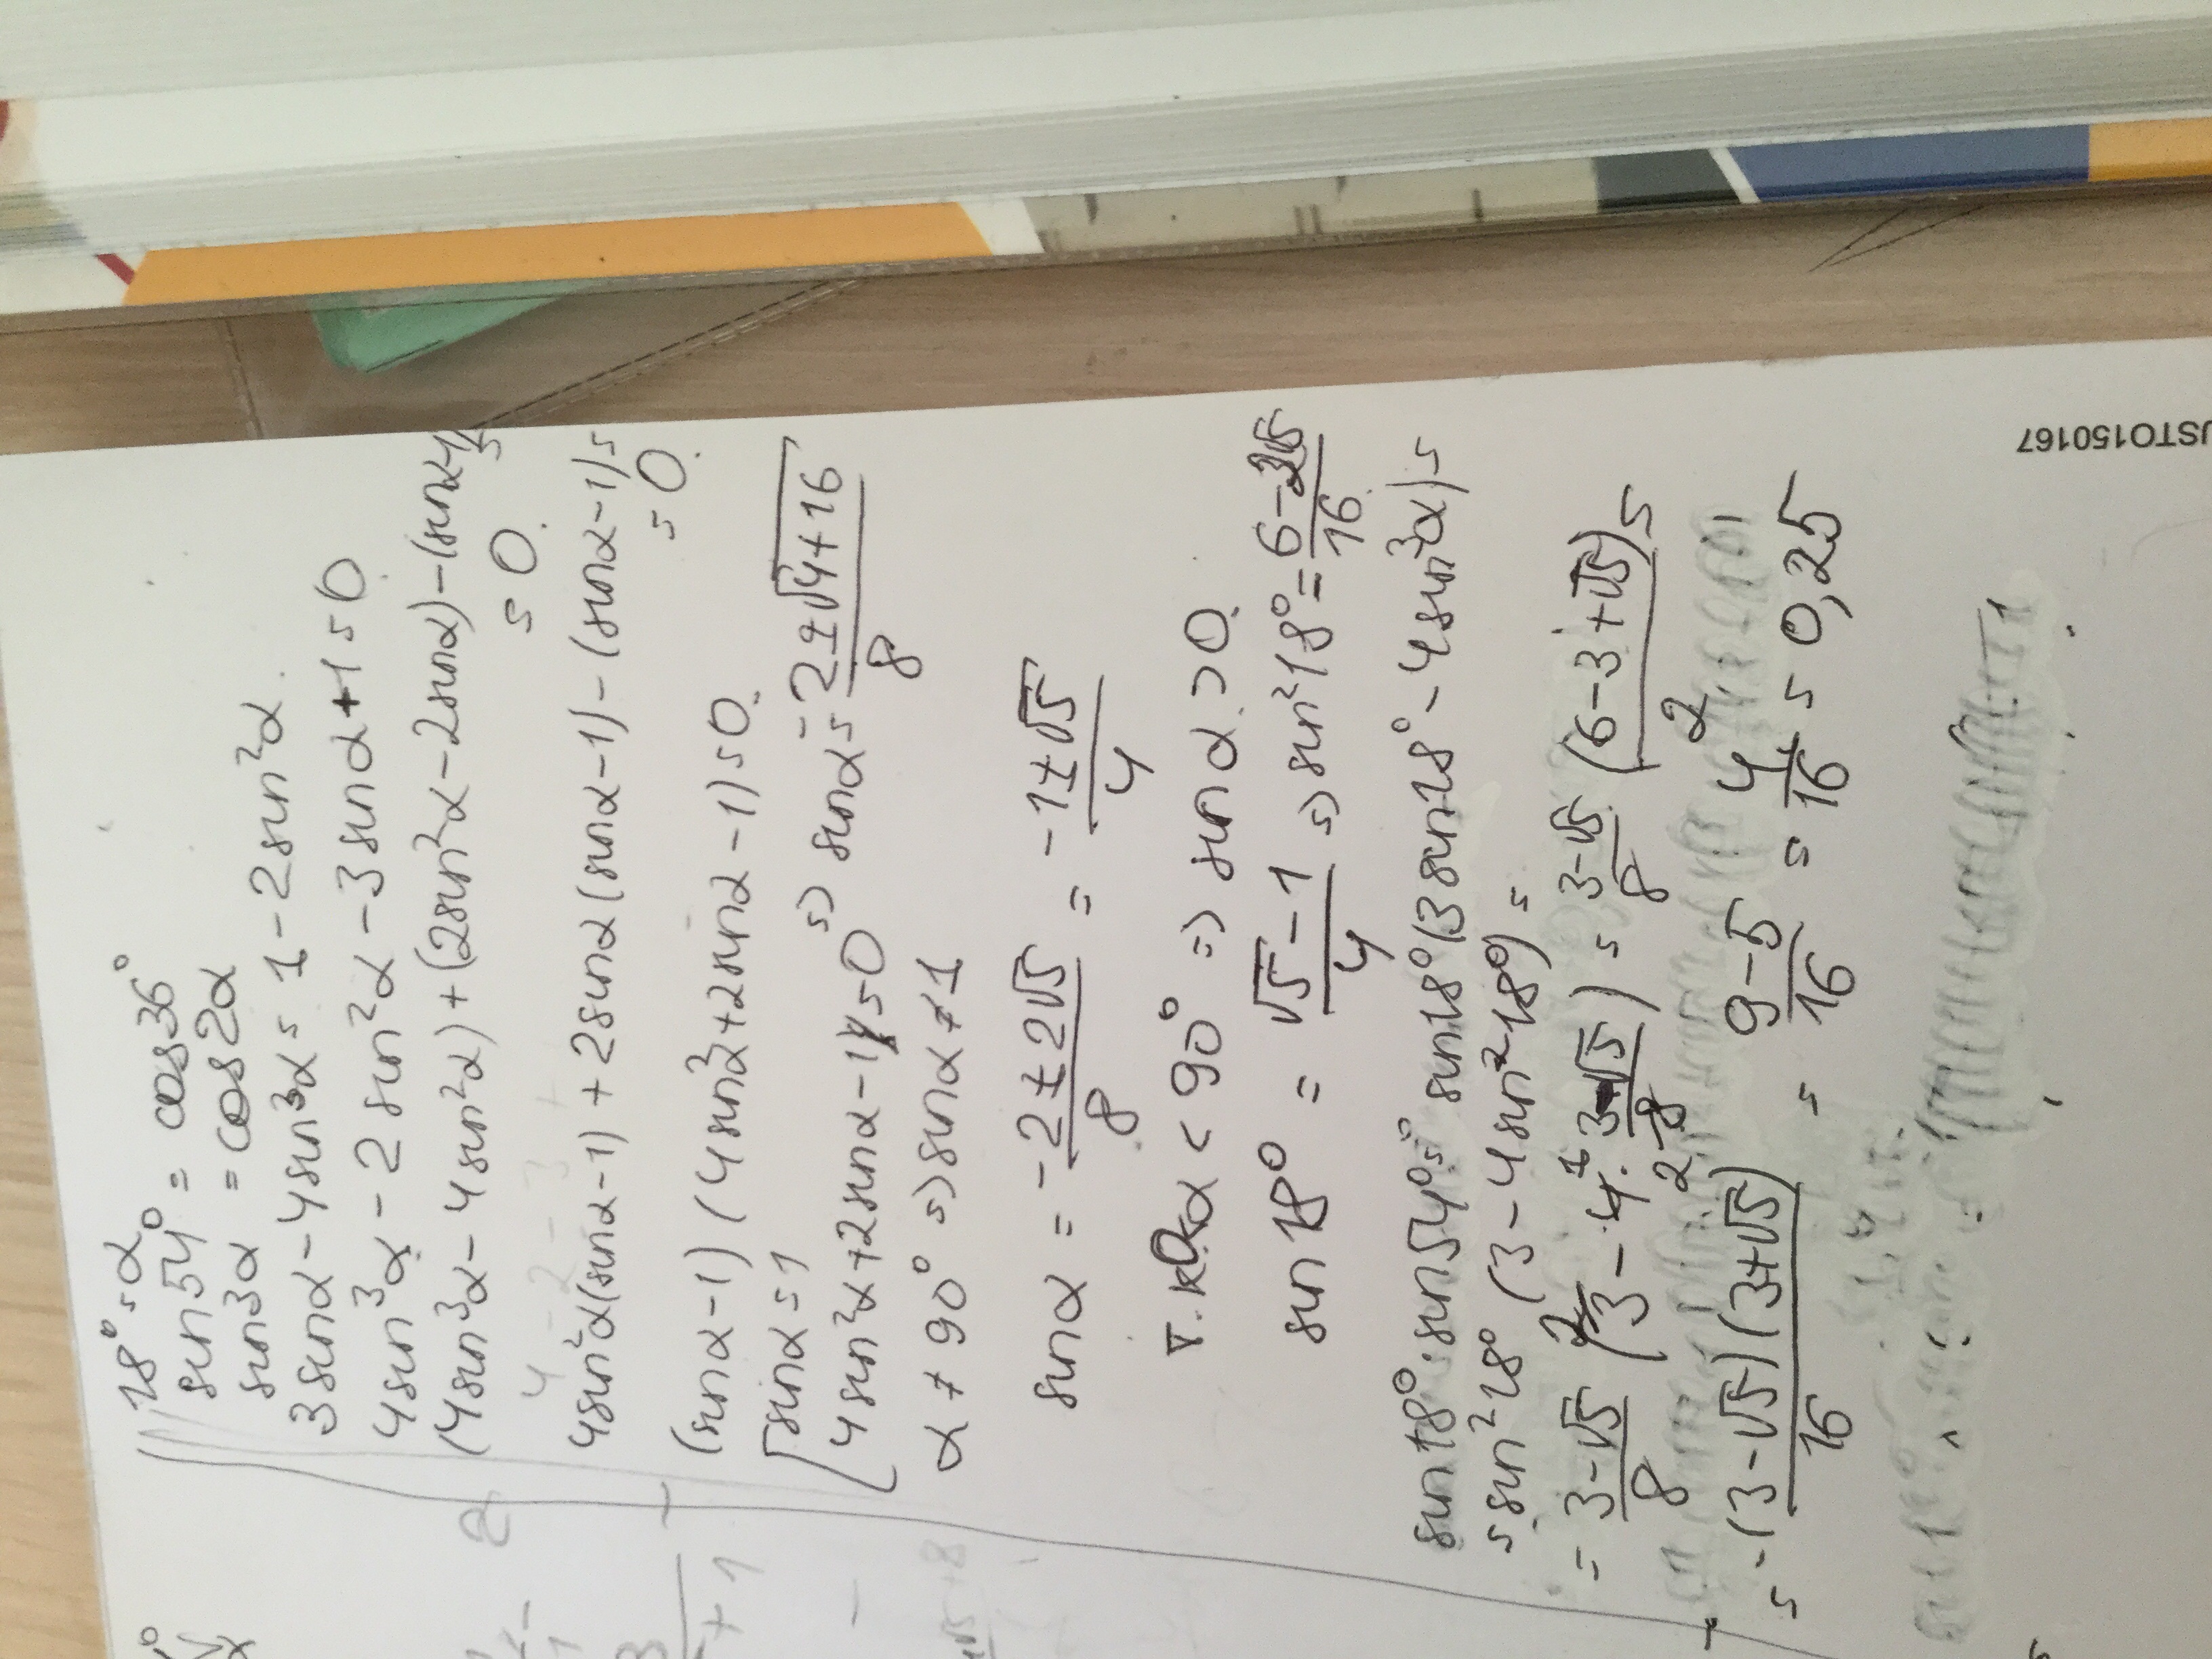 18° = α
sin54° = cos36°
sin3α = cos2α
3sinα - 4sin³α = 1 - 2sin²α.
4sin³α - 2sin²α - 3sinα + 1 = 0
(4sin³α - 4sin²α) + (2sin²α - 2sinα) - (sinα - 1) =
= 0.
4sin²α(sinα - 1) + 2sinα(sinα - 1) - (sinα - 1) =
= 0.
(sinα - 1)(4sin²α + 2sinα - 1) = 0.
sinα = 1
4sin²α + 2sinα - 1 = 0 => sinα = (-2 ± √(4+16))/8
α ≠ 90° => sinα ≠ 1
sinα = (-2 ± 2√5)/8 = (-1 ± √5)/4
т.к. 0 < α < 90° => sinα > 0.
sin18° = (√5 - 1)/4 => sin²18° = (6 - 2√5)/16
sin18° · sin54° = sin18°(3sin18° - 4sin³α) =
= sin²18°(3 - 4sin²18°) =
= (3-√5)/8 (3 - 4 · (3-√5)/8) = (3-√5)/8 (6-3+√5)/2 =
= (3-√5)(3+√5)/16 = (9-5)/16 = 4/16 = 0,25
USTO150167
+ 1